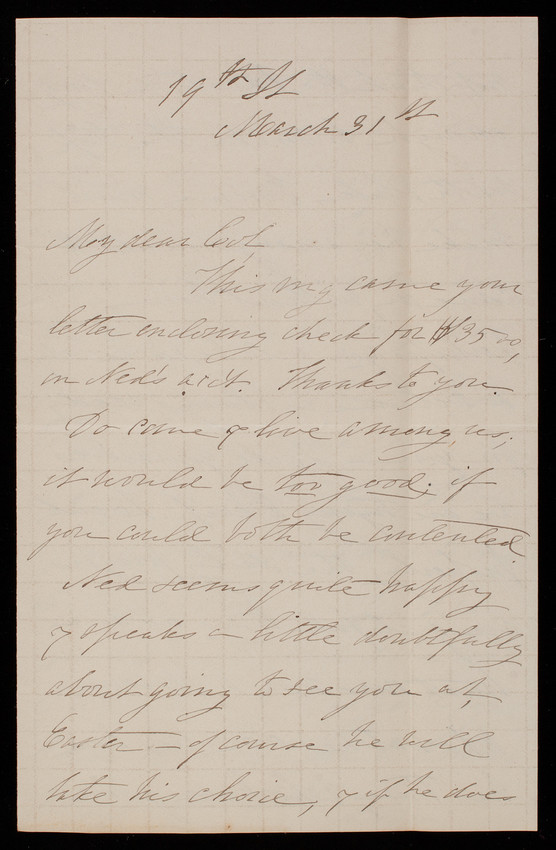 19th St
March 31st
My dear Col
This mg came your
letter enclosing check for $35 00,
on Ned's ac't. Thanks to you.
Do come & live among us,
it would be too good; if
you could both be contented.
Ned seems quite happy
& speaks a little doubtfully
about going to see you at
Easter – of course he will
take his choice, & if he does